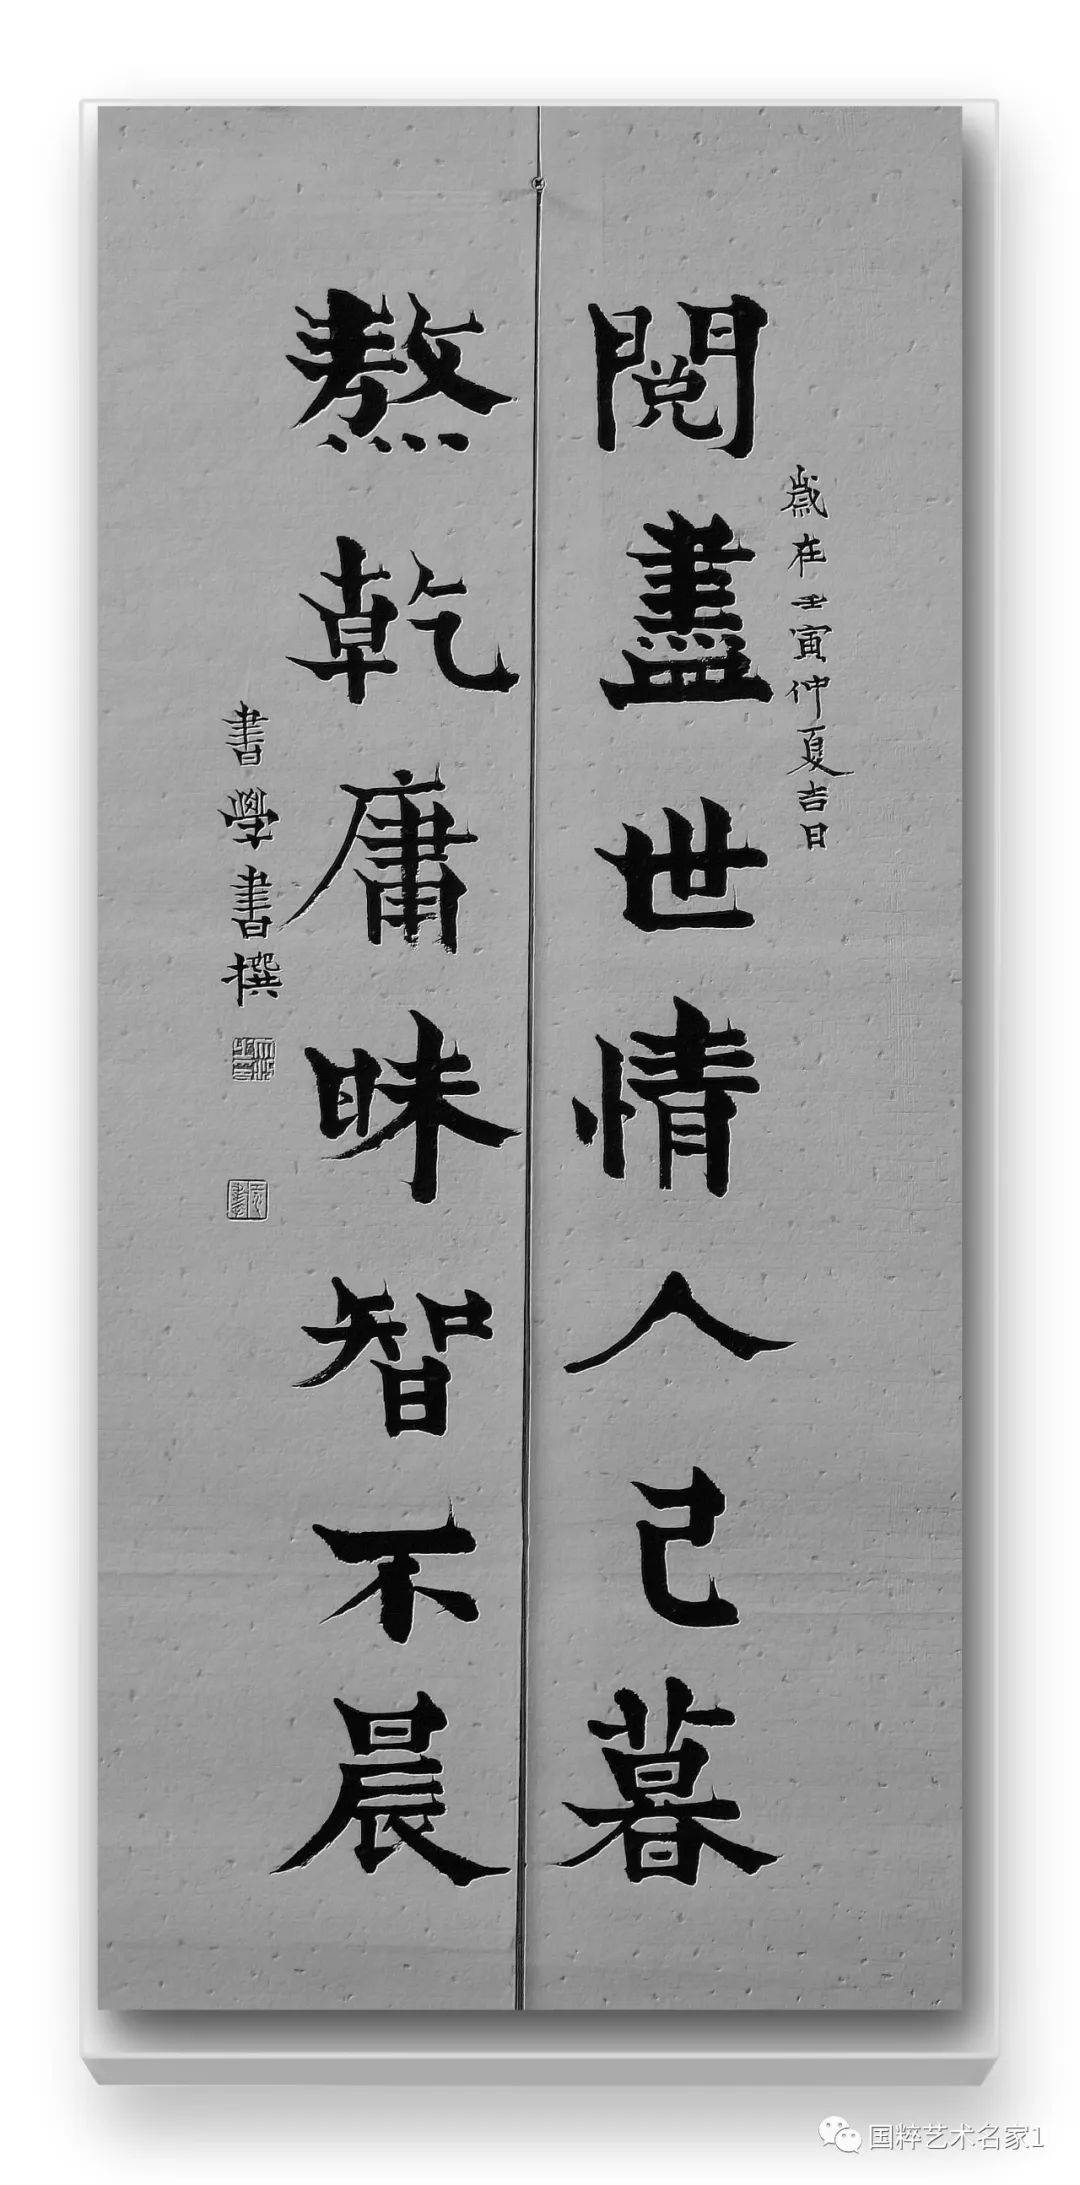 歲在壬寅仲夏吉日
閱盡世情人己暮
熬乾庸昧智不晨
書學書撰
国粹艺术名家1